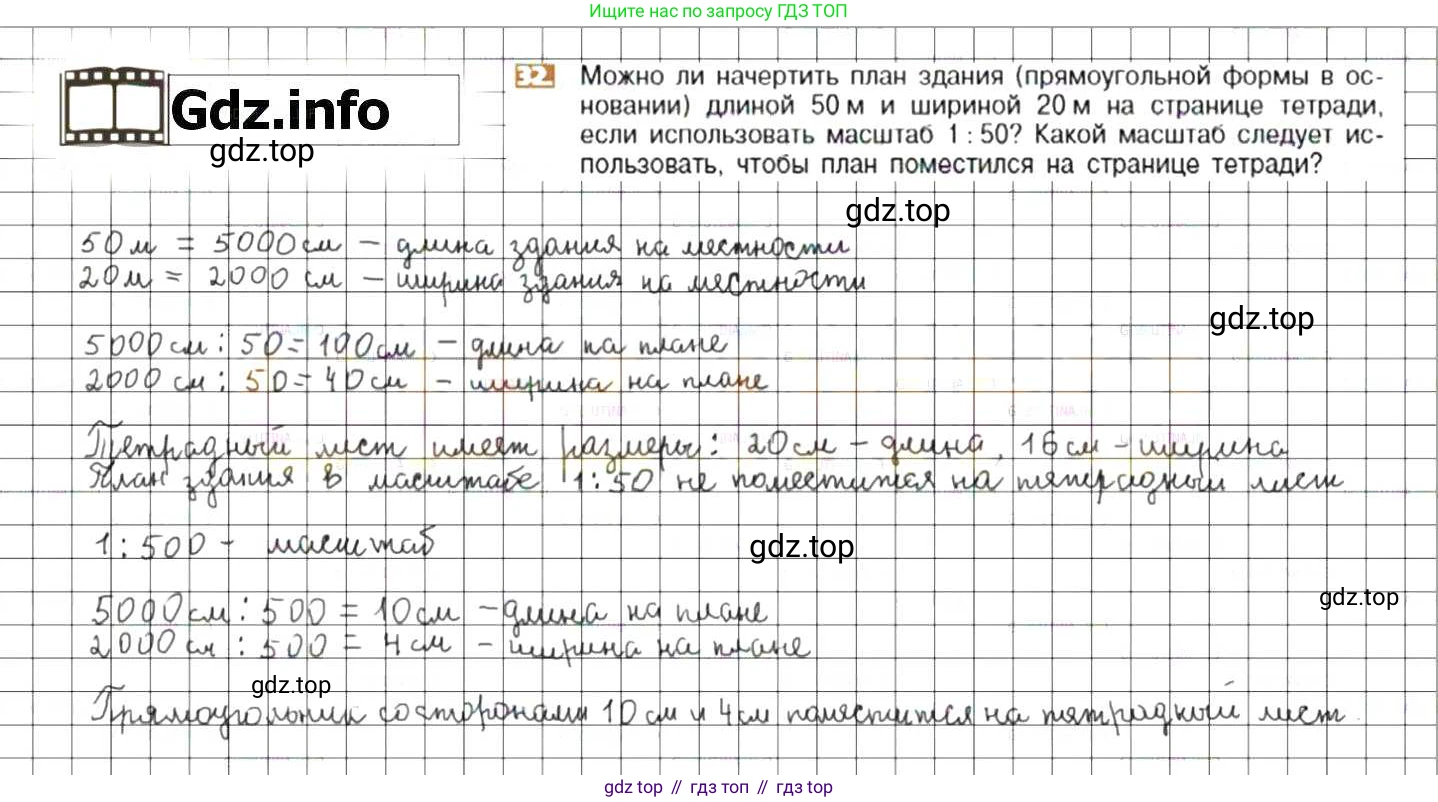 Ищите нас по запросу ГДЗ ТОП
Gdz.info
gdz.top
32 Можно ли начертить план здания (прямоугольной формы в ос-
новании) длиной 50 м и шириной 20 м на странице тетради,
если использовать масштаб 1 : 50? Какой масштаб следует ис-
пользовать, чтобы план поместился на странице тетради?
gdz.top
50 м = 5000 см – длина здания на местности
20 м = 2000 см – ширина здания на местности
gdz.top
5000 см : 50 = 100 см – длина на плане
2000 см : 50 = 40 см – ширина на плане
Тетрадный лист имеет размеры: 20 см – длина, 16 см – ширина
План здания в масштабе 1 : 50 не поместится на тетрадный лист
1 : 500 – масштаб
gdz.top
gdz.top
5000 см : 500 = 10 см – длина на плане
2000 см : 500 = 4 см – ширина на плане
gdz.top
Прямоугольник со сторонами 10 см и 4 см поместится на тетрадный лист.
gdz top // гдз топ // gdz top